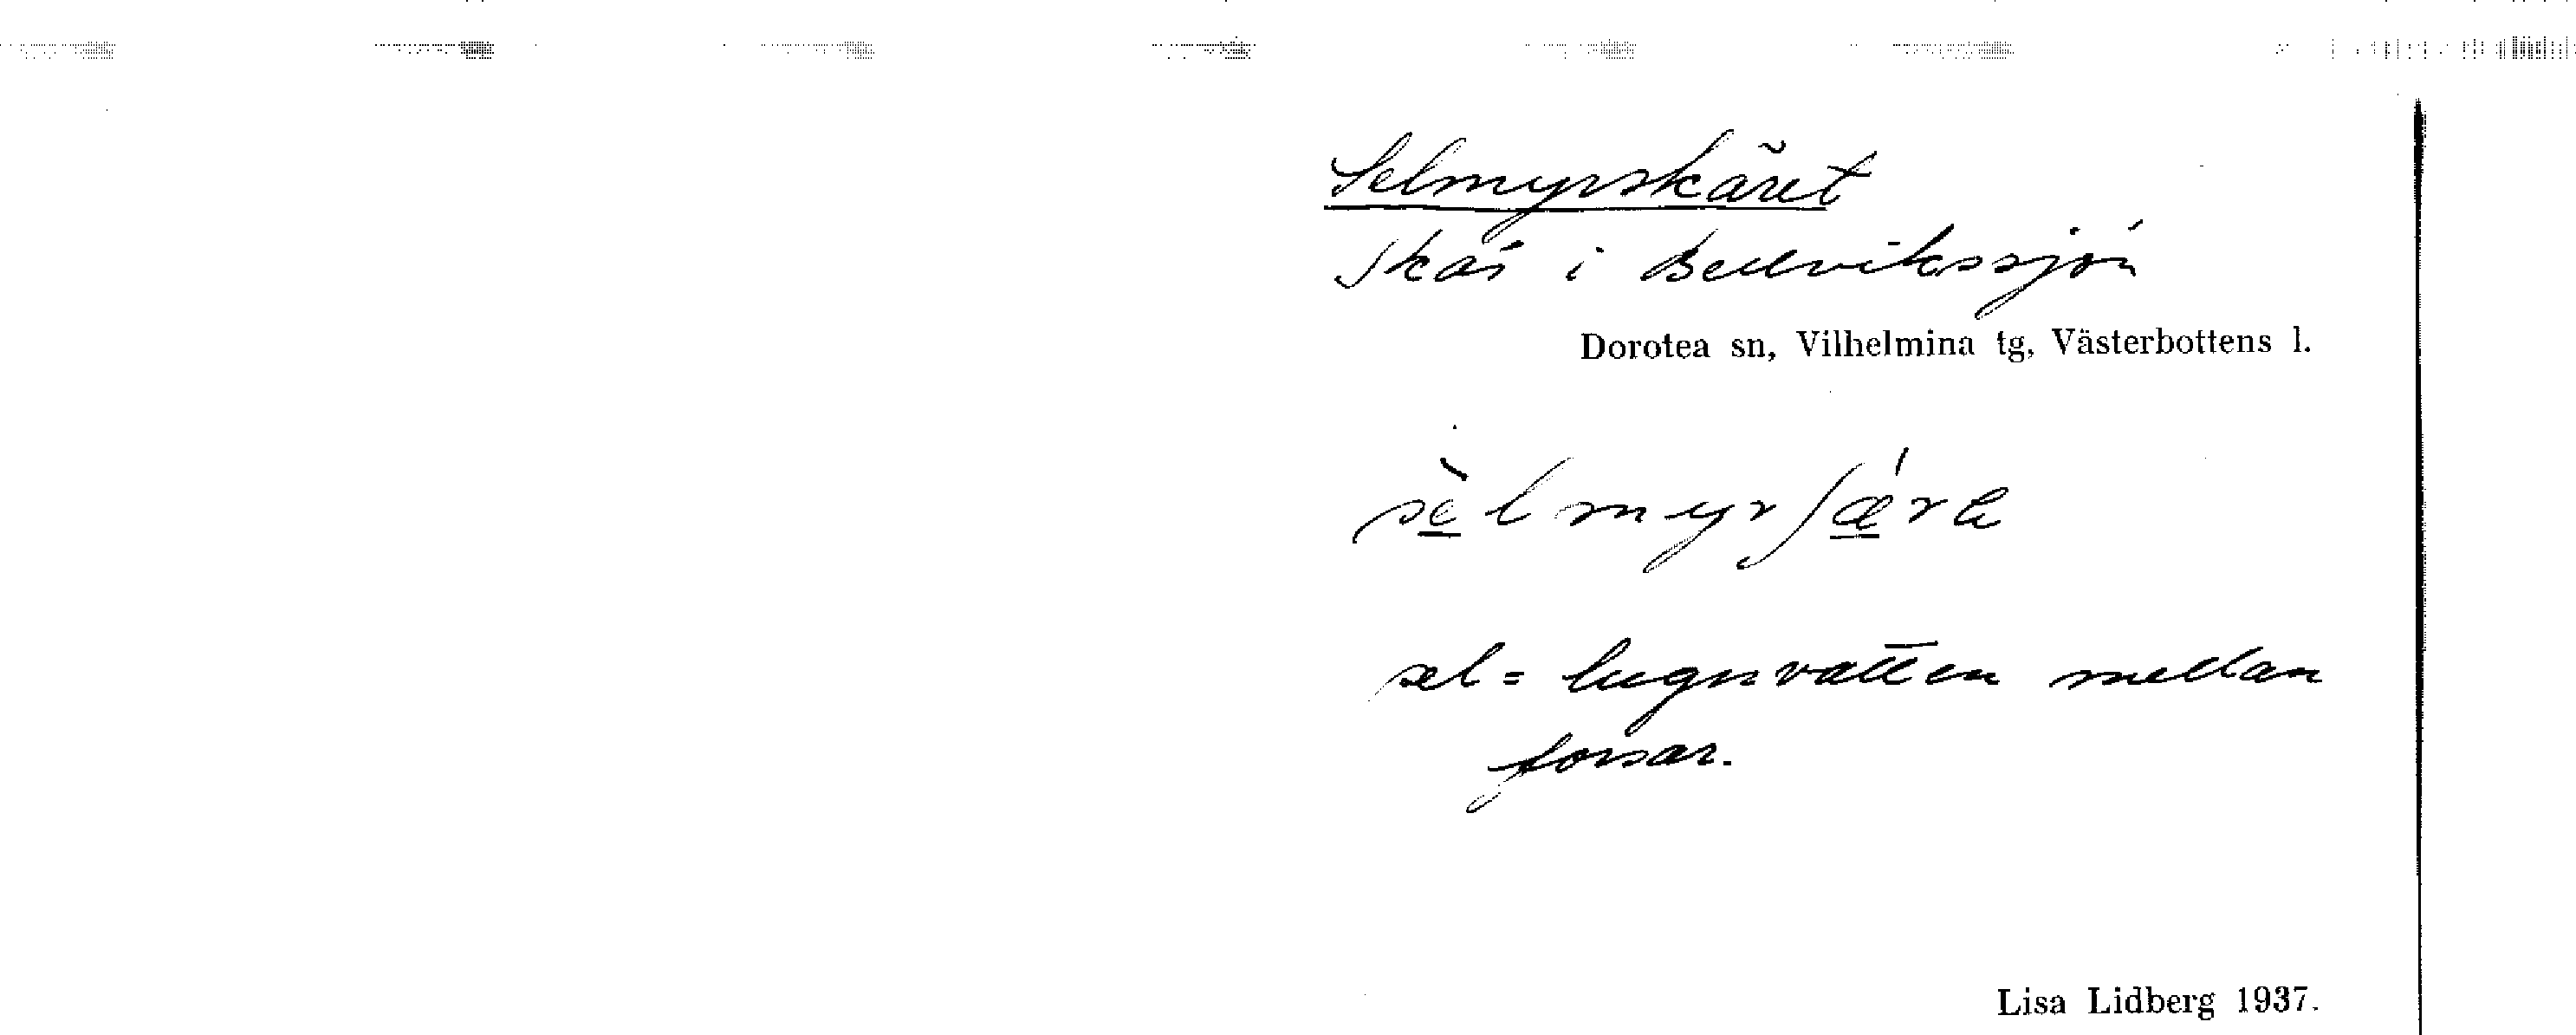 Selmyrskäret
Skär i Bellvikssjön
Dorotea sn, Vilhelmina tg, Västerbottens l.
sèlmyrʃǽrə
sel = lugnvatten mellan
forsar.
Lisa Lidberg 1937.